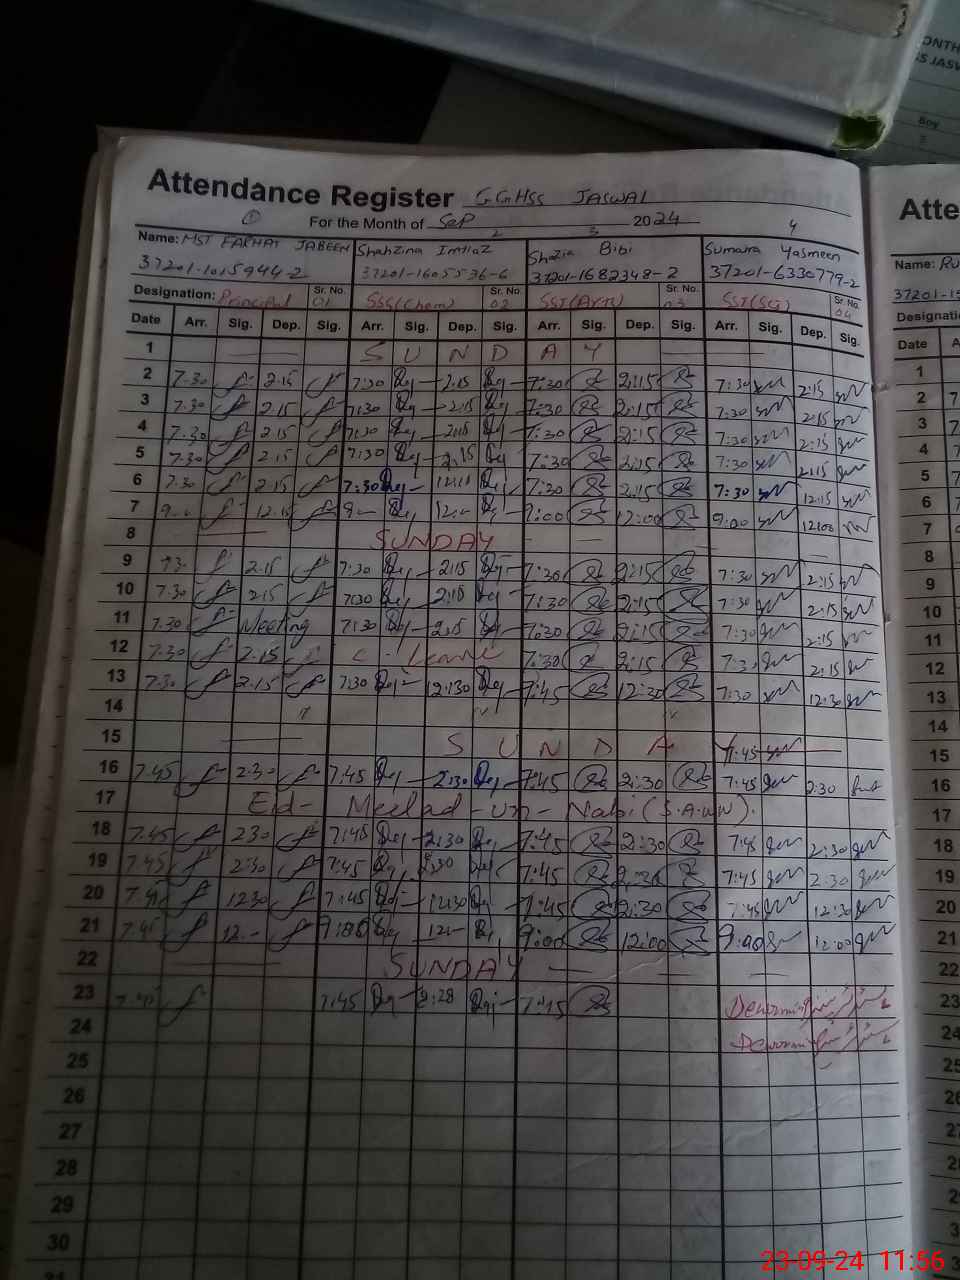 ONTH
S JASW
Boy
Attendance Register GGHSS JASWAL
For the Month of Sep 2024
1 2 3 4
Name: MST FARHAT JABEEN Shahzina Imtiaz Shazia Bibi Sumaira Yasmeen
37201-1015944-2 37201-1605536-6 37201-1682348-2 37201-6330779-2
Designation: Principal Sr. No. 01 SSS(Chem) Sr. No. 02 SST(Arts) Sr. No. 03 SST(Sci) Sr. No. 04
Date Arr. Sig. Dep. Sig. Arr. Sig. Dep. Sig. Arr. Sig. Dep. Sig. Arr. Sig. Dep. Sig.
1 SUNDAY
2 7.30 2.15 7:30 2:15 7:30 2:15 7:30 2:15
3 7.30 2.15 7:30 2:15 7:30 2:15 7:30 2:15
4 7.30 2.15 7:30 2:15 7:30 2:15 7:30 2:15
5 7.30 2.15 7:30 2:15 7:30 2:15 7:30 2:15
6 7.30 2.15 7:30 7:30 2:15 7:30 12:15
7 9:00 12:00 9:00 12:00
8 SUNDAY
9 2.15 7:30 2:15 7:30 2:15 7:30 2:15
10 7.30 2.15 7:30 2:15 7:30 2:15 7:30 2:15
11 7.30 Meeting 7:30 2:15 7:30 2:15 7:30 2:15
12 7.30 2.15 C. Leave 7:30 2:15 7:30 2:15
13 7.30 2.15 7:30 12:30 7:45 12:30 7:30 12:30
14
15 SUNDAY 7:45
16 7.45 2.30 7:45 2:30 7:45 2:30 7:45 2:30
17 Eid- Meelad-un-Nabi (S.A.W.W).
18 7.45 2.30 7:45 2:30 7:45 2:30 7:45 2:30
19 7.45 2:30 7:45 2:30 7:45 2:30 7:45 2:30
20 7.45 12.30 7:45 12:30 7:45 2:30 7:45 12:30
21 7.45 12.- 9:00 12- 9:00 12:00 9:00 12:00
22 SUNDAY
23 7.45 7:45 2:28 7:45
24
25
26
27
28
29
30
31
Atte
Name: Ru
37201-15
Designatio
Date A
1
2 7
3 7
4 7
5 7
6 7
7 9
8
9 7
10
11
12
13
14
15
16
17
18
19
20
21
22
23
24
25
26
27
28
29
30
23-09-24 11:56